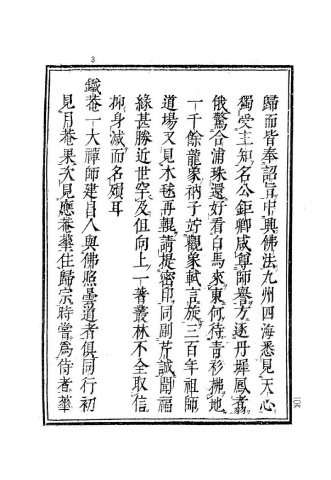 歸而皆奉詔言中興佛法九州四海悉見天心
獨受主知名公鉅卿咸尊師譽方逐丹墀鳳翥
俄驚合浦珠還好看白馬來東何待青衫拂地
一千餘龍象衲子好觀象軾言旋三百年祖師
道場又見木毬再輥請提密印同副芹誠聞福
緣甚勝近世罕及但向上一著叢林不全取信
抑身滅而名殞耳
鐵菴一大禪師建昌人與佛照曇道者俱同行初
見月菴果次見應菴華住歸宗時嘗為侍者華